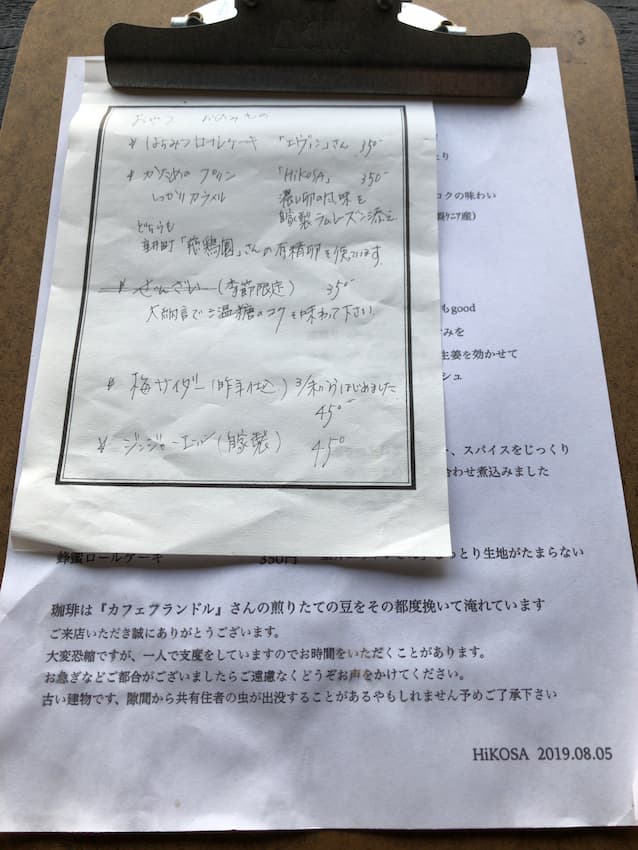 おやつ のみもの
* はちみつロールケーキ 「エヴァン」さん 350-
* かためのプリン 「HiKOSA」 350-
しっかりカラメル 濃い卵の風味を
自家製ラムレーズン添え
どちらも
「鶏園」さんの有精卵を使っています。
* ぜんざい (季節限定) 350-
大納言で三温糖のコクを味わって下さい。
* 梅サイダー (昨年仕込) はじめました
450-
* ジンジャーエール (自家製) 450
コクの味わい
ニア産)
もgood
みを
生姜を効かせて
シュ
、スパイスをじっくり
合わせ煮込みました
蜂蜜ロールケーキ 350円 っとり生地がたまらない
珈琲は『カフェフランドル』さんの煎りたての豆をその都度挽いて淹れています
ご来店いただき誠にありがとうございます。
大変恐縮ですが、一人で支度をしていますのでお時間をいただくことがあります。
お急ぎなどご都合がございましたらご遠慮なくどうぞお声をかけてください。
古い建物です、隙間から共有住者の虫が出没することがあるやもしれません予めご了承下さい
HiKOSA 2019.08.05